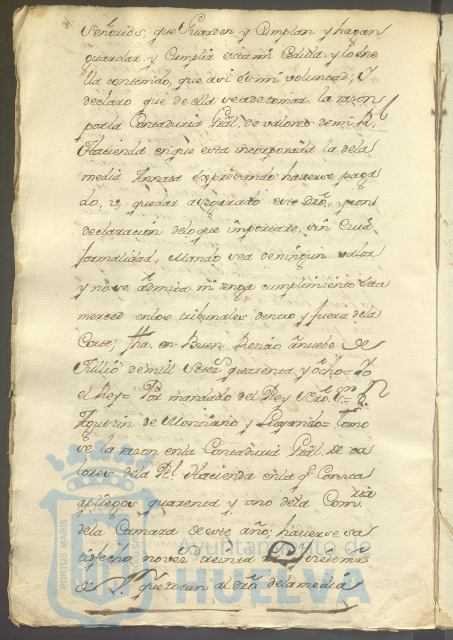 Señorios, que Guarden y Cumplan y hagan
guardar y Cumplir esta mi Cedula, y lo en e
lla contenido, que asi es mi voluntad; Y
declaro que de ella se ha de tomar la razon
por la Contaduria Grãl. de valores de mi Rl.
Hacienda en que esta incorporada la dela
media Annata expresando haverse paga
do, ũ, quedar asegurado este dro, y con
declaracion delo que importare, sin cuia
formalidad, Mando sea deningun valor
y nose admita ni tenga cumplimiento esta
merced enlos tribunales dentro y fuera dela
Corte; fha. en Buen Retiro ã nuebe de
Jullio de mill setes. quarenta y ôcho= Yo
el Rey= Por mandado del Rey nro. Sr.= Dn.
Agustin de Montiano y Luyando= Tomo
se la razon enla Contaduria Grãl. de va
lores dela Rl. Hacienda enla qe. Consta
apliegos quarenta y uno dela Comria.
dela Camara de este año; haverse sa
tisfecho noves. treinta
de que tocan al dro. dela media
PORTUS MARIS
Ayuntamiento de
HUELVA